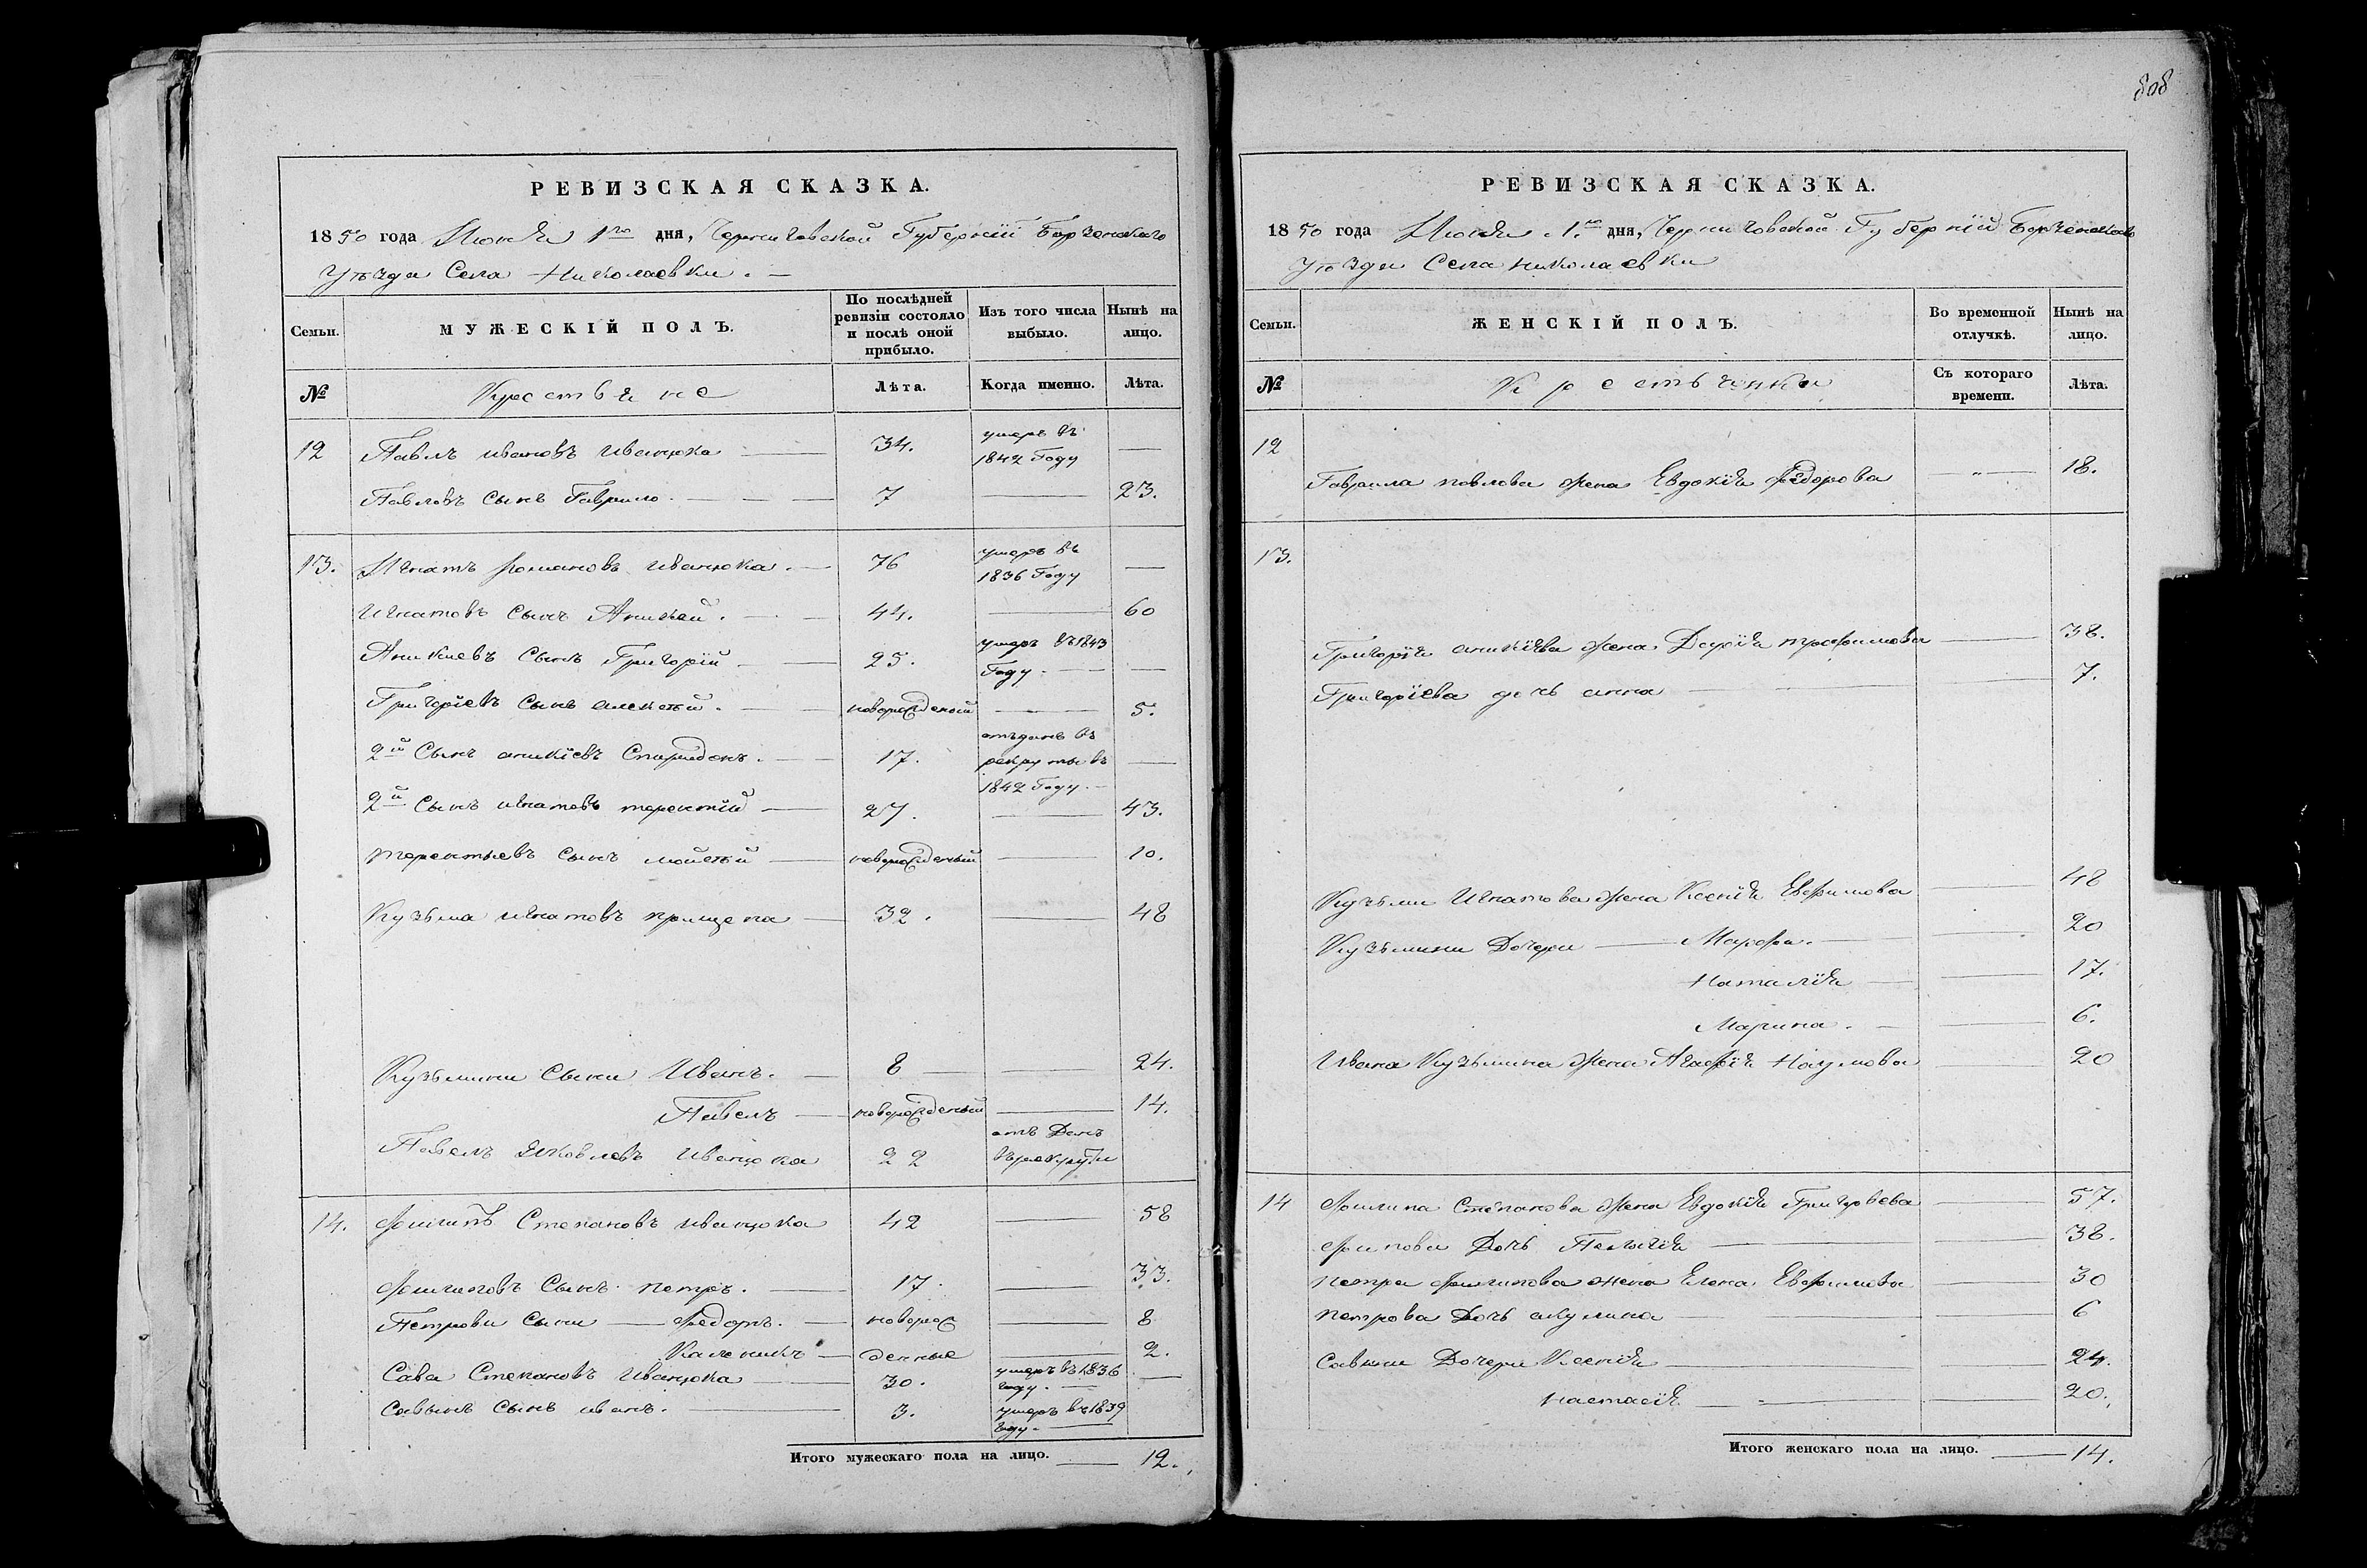 РЕВИЗСКАЯ СКАЗКА.
1850 года Июня 1го дня, Черниговской Губернїи Борзенскаго
Уѣзда Села Николаевки.
Семьи. МУЖЕСКІЙ ПОЛЪ. По послѣдней ревизіи состояло и послѣ оной прибыло. Изъ того числа выбыло. Нынѣ на лицо.
№ Крестьяне Лѣта. Когда именно. Лѣта.
12 Павлъ ивановъ иванцока 34. умеръ въ 1842 Году —
Павловъ Сынъ Гаврило 7 23.
13. Игнатъ романовъ иванцока. 76 умеръ въ 1836 Году —
Игнатовъ Сынъ Аникей. 44. 60
Аникиевъ Сынъ Григорїй 25. умеръ въ 1843 Году. —
Григорїевъ Сынъ алексей. новорожденый 5.
2й Сынъ аникїевъ Спиридонъ. 17. отъданъ въ рекруты въ 1842 Году. —
2й Сынъ игнатовъ терентїй 27. 43.
терентьевъ Сынъ мойсей новорожденый 10.
Кузьма игнатовъ прищепа 32. 48
Кузьмини Сыни Иванъ. 8 24.
Павелъ новорожденый 14.
Павелъ яковлевъ Иванцока 22 отъ Данъ в рекруты
14. Филипъ Степановъ иванцока 42 58
Филиповъ Сынъ петръ. 17. 33.
Петрови Сыни — Федоръ. новорож 8
Каленикъ денные 2.
Сава Степановъ Иванцока 30. умеръ въ 1836 году. —
Савынъ Сынъ иванъ. 3. умеръ въ 1839 году.
Итого мужескаго пола на лицо. 12.
808
РЕВИЗСКАЯ СКАЗКА.
1850 года Июня 1го дня, Черниговской Губернїи Борзенскаго
Уѣзда Села николаевки
Семьи. ЖЕНСКІЙ ПОЛЪ. Во временной отлучкѣ. Нынѣ на лицо.
№ Крестьянки Съ котораго времени. Лѣта.
12
Гаврила павлова жена Евдокїя федорова 18.
13.
Григорїя аникїева жена Дарїя трофимова 38.
Григорїева дочь анна 7.
Кузьми Игнатова жена Ксенїя Евфимова 48
Кузьмини Дочери — Марфа. 20
Наталїя 17.
Марина. 6.
Ивана Кузьмина жена Агафїя Наумова 20
14 Филипа Степанова жена Евдокїя Григорьева 57.
Филипова Дочь Пелагїя 38.
петра филипова жена Елена Евфимова 30
петрова Дочь акулина 6
Савини Дочери Ксенїя 24.
настасїя 20.
Итого женскаго пола на лицо. 14.